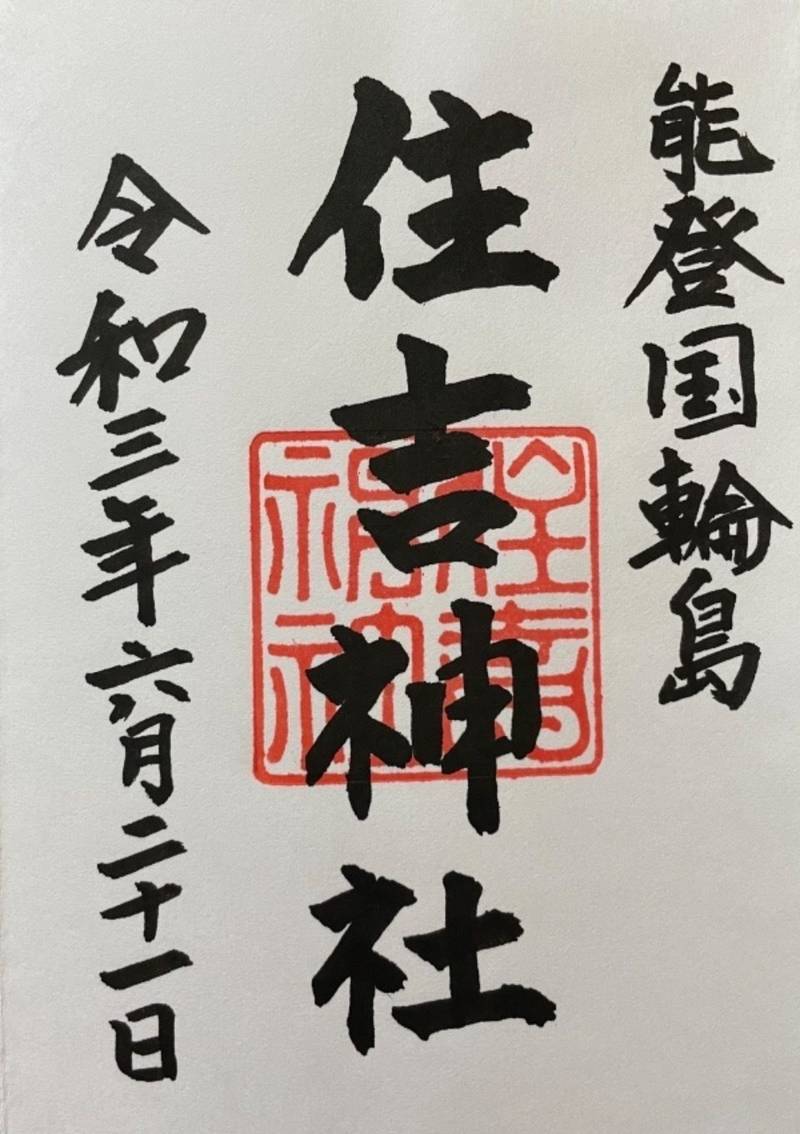 能登国輪島
住吉神社
令和三年六月二十一日